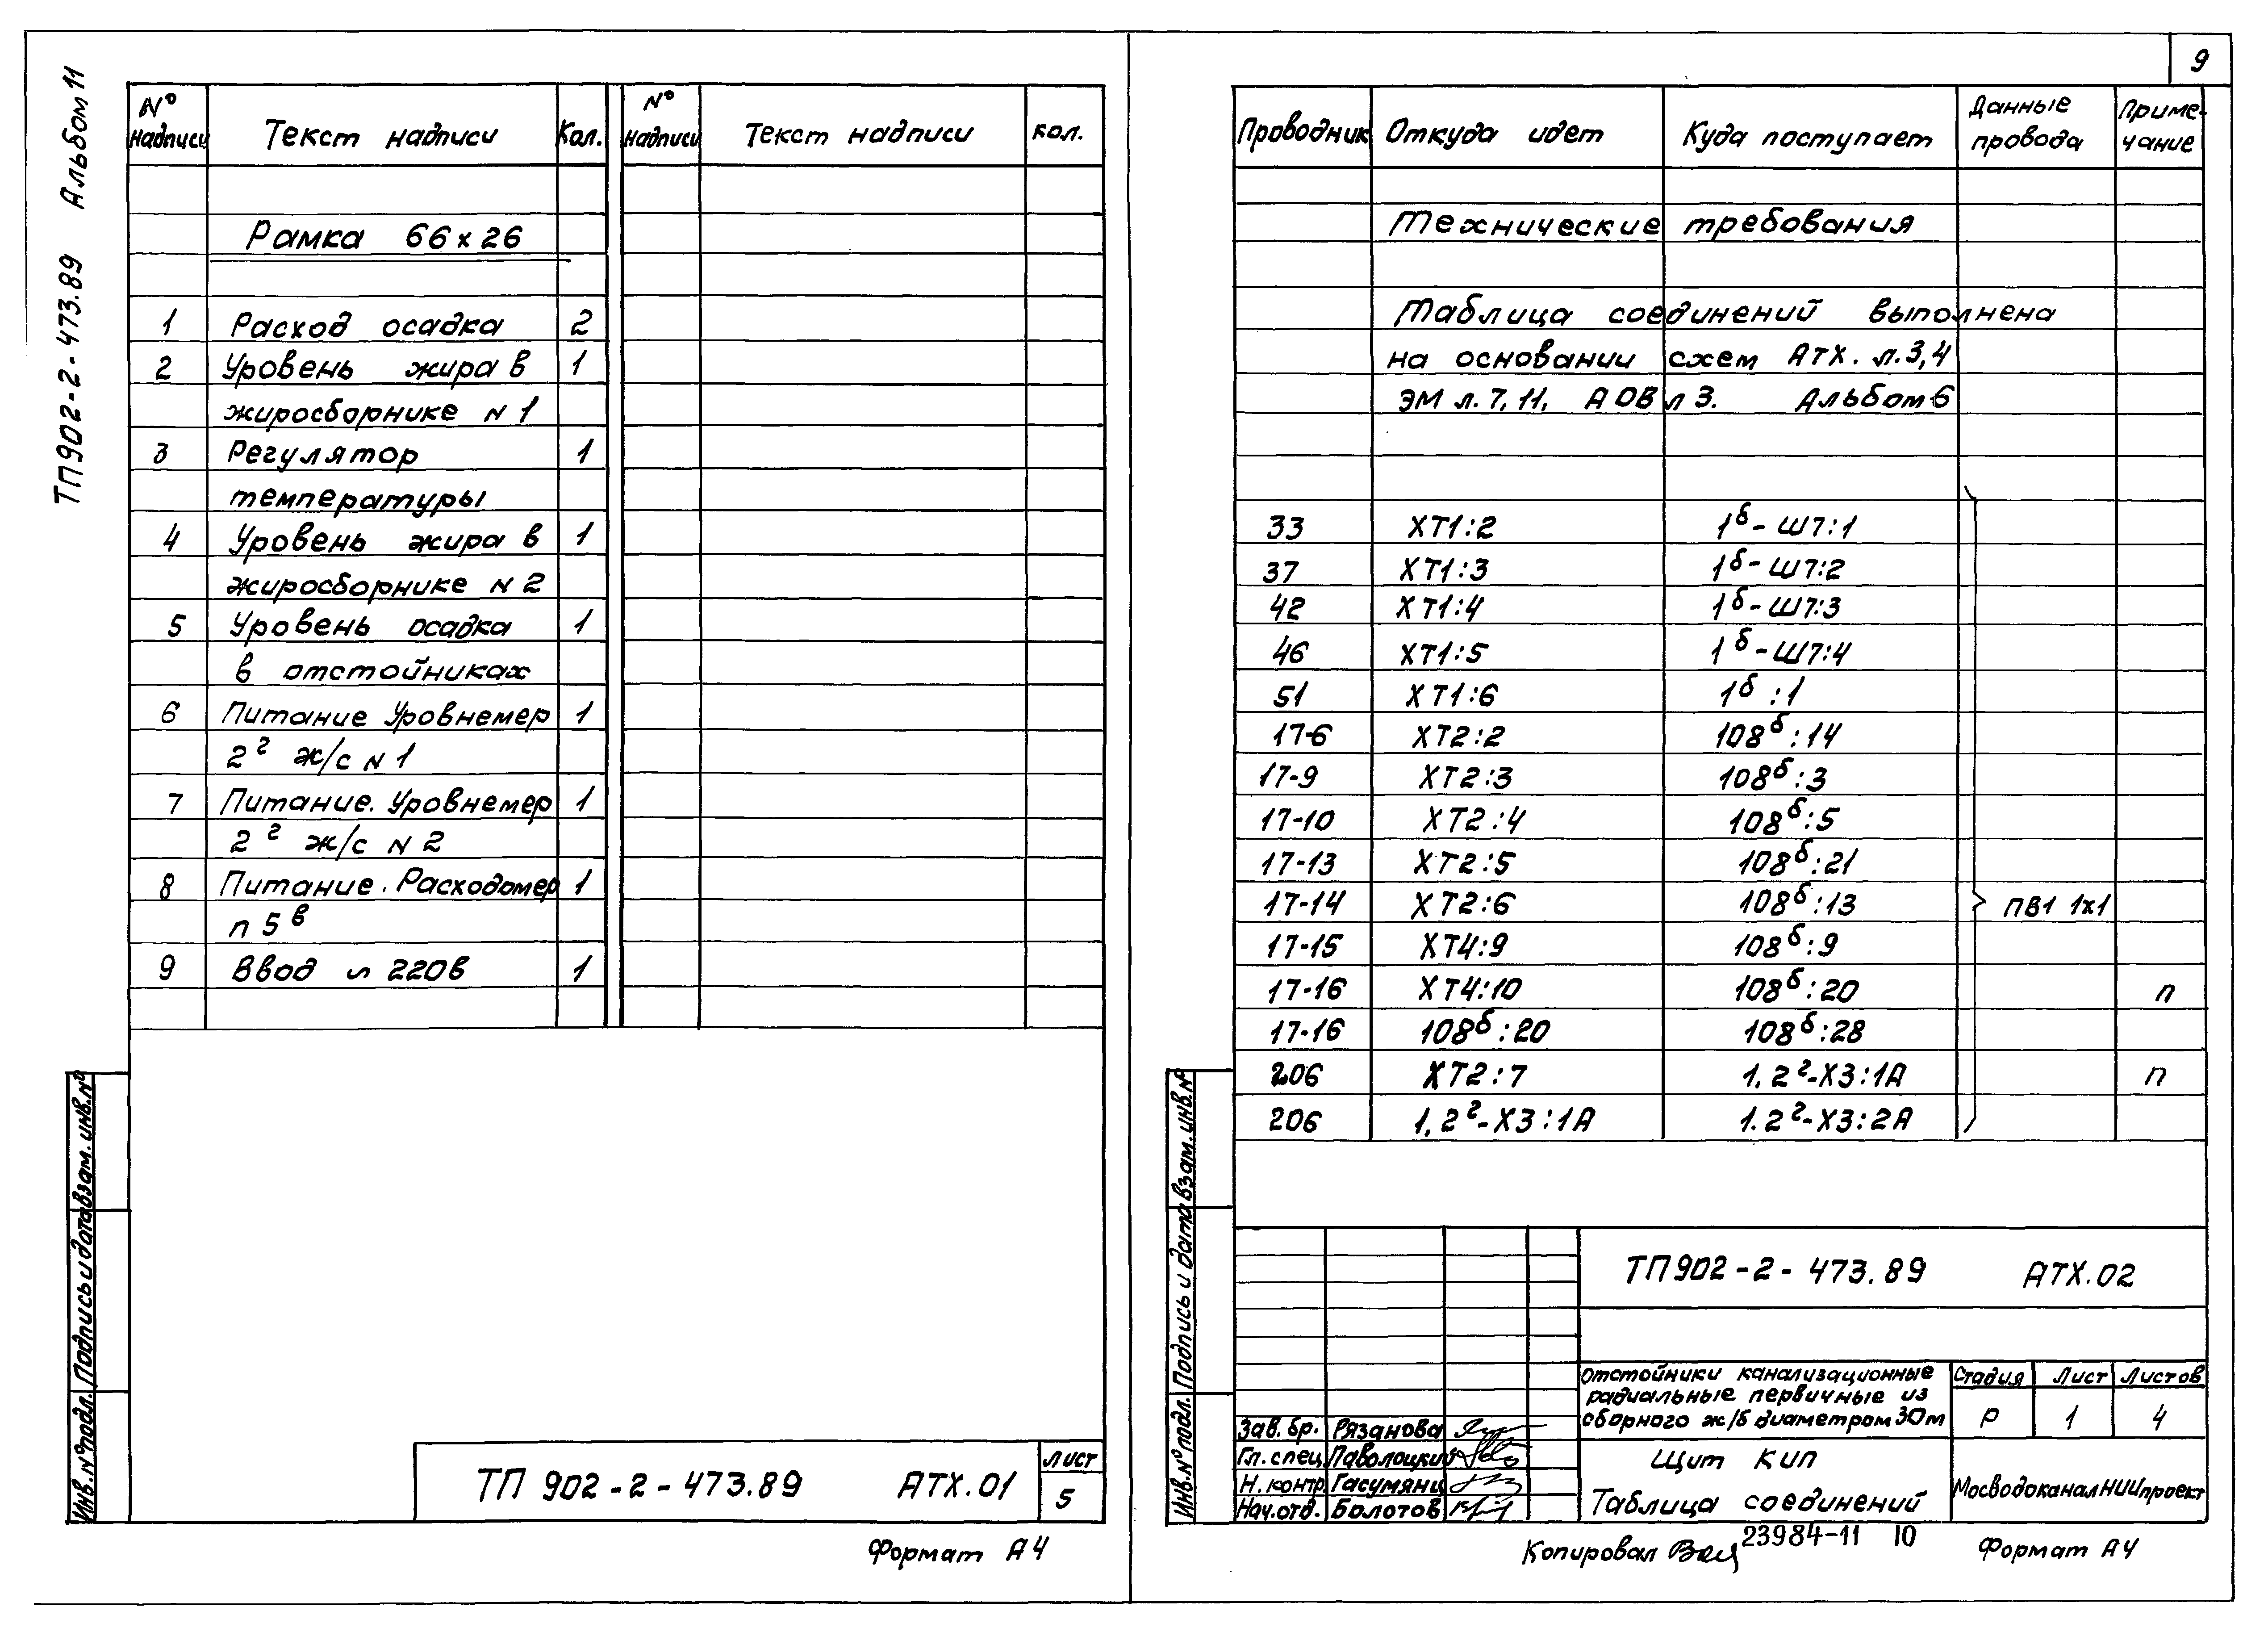 ТП902-2-473.89 Альбом 11
№ надписи Текст надписи Кол. № надписи Текст надписи кол.
Рамка 66х26
1 Расход осадка 2
2 Уровень жира в 1
жиросборнике N 1
3 Регулятор 1
температуры
4 Уровень жира в 1
жиросборнике N 2
5 Уровень осадка 1
в отстойниках
6 Питание Уровнемер 1
2г ж/с N 1
7 Питание. Уровнемер 1
2г ж/с N 2
8 Питание. Расходомер 1
п 5в
9 Ввод ~ 220в 1
Инв. № подл. Подпись и дата Взам. инв. №
ТП 902-2-473.89 АТХ.01
Лист
5
Формат А4
9
Проводник Откуда идет Куда поступает Данные провода Примечание
Технические требования
Таблица соединений выполнена
на основании схем АТХ. л.3,4
ЭМ л. 7, 11, АОВ л 3. Альбом 6
33 ХТ1:2 1б-Ш7:1
37 ХТ1:3 1б-Ш7:2
42 ХТ1:4 1б-Ш7:3
46 ХТ1:5 1б-Ш7:4
51 ХТ1:6 1б:1
17-6 ХТ2:2 108б:14
17-9 ХТ2:3 108б:3
17-10 ХТ2:4 108б:5
17-13 ХТ2:5 108б:21
17-14 ХТ2:6 108б:13 ПВ1 1х1
17-15 ХТ4:9 108б:9
17-16 ХТ4:10 108б:20 п
17-16 108б:20 108б:28
206 ХТ2:7 1, 2г-Х3:1А п
206 1, 2г-Х3:1А 1. 2г-Х3:2А
Инв. № подл. Подпись и дата Взам. инв. №
ТП902-2-473.89 АТХ.02
Отстойники канализационные
радиальные первичные из
сборного ж/б диаметром 30м
Стадия Лист Листов
Р 1 4
Зав. бр. Рязанова
Гл. спец Паволоцкий
Н. контр. Гасумянц
Нач. отд. Болотов
Щит КИП
Таблица соединений
МосводоканалНИИпроект
Копировал
23984-11 10
Формат А4